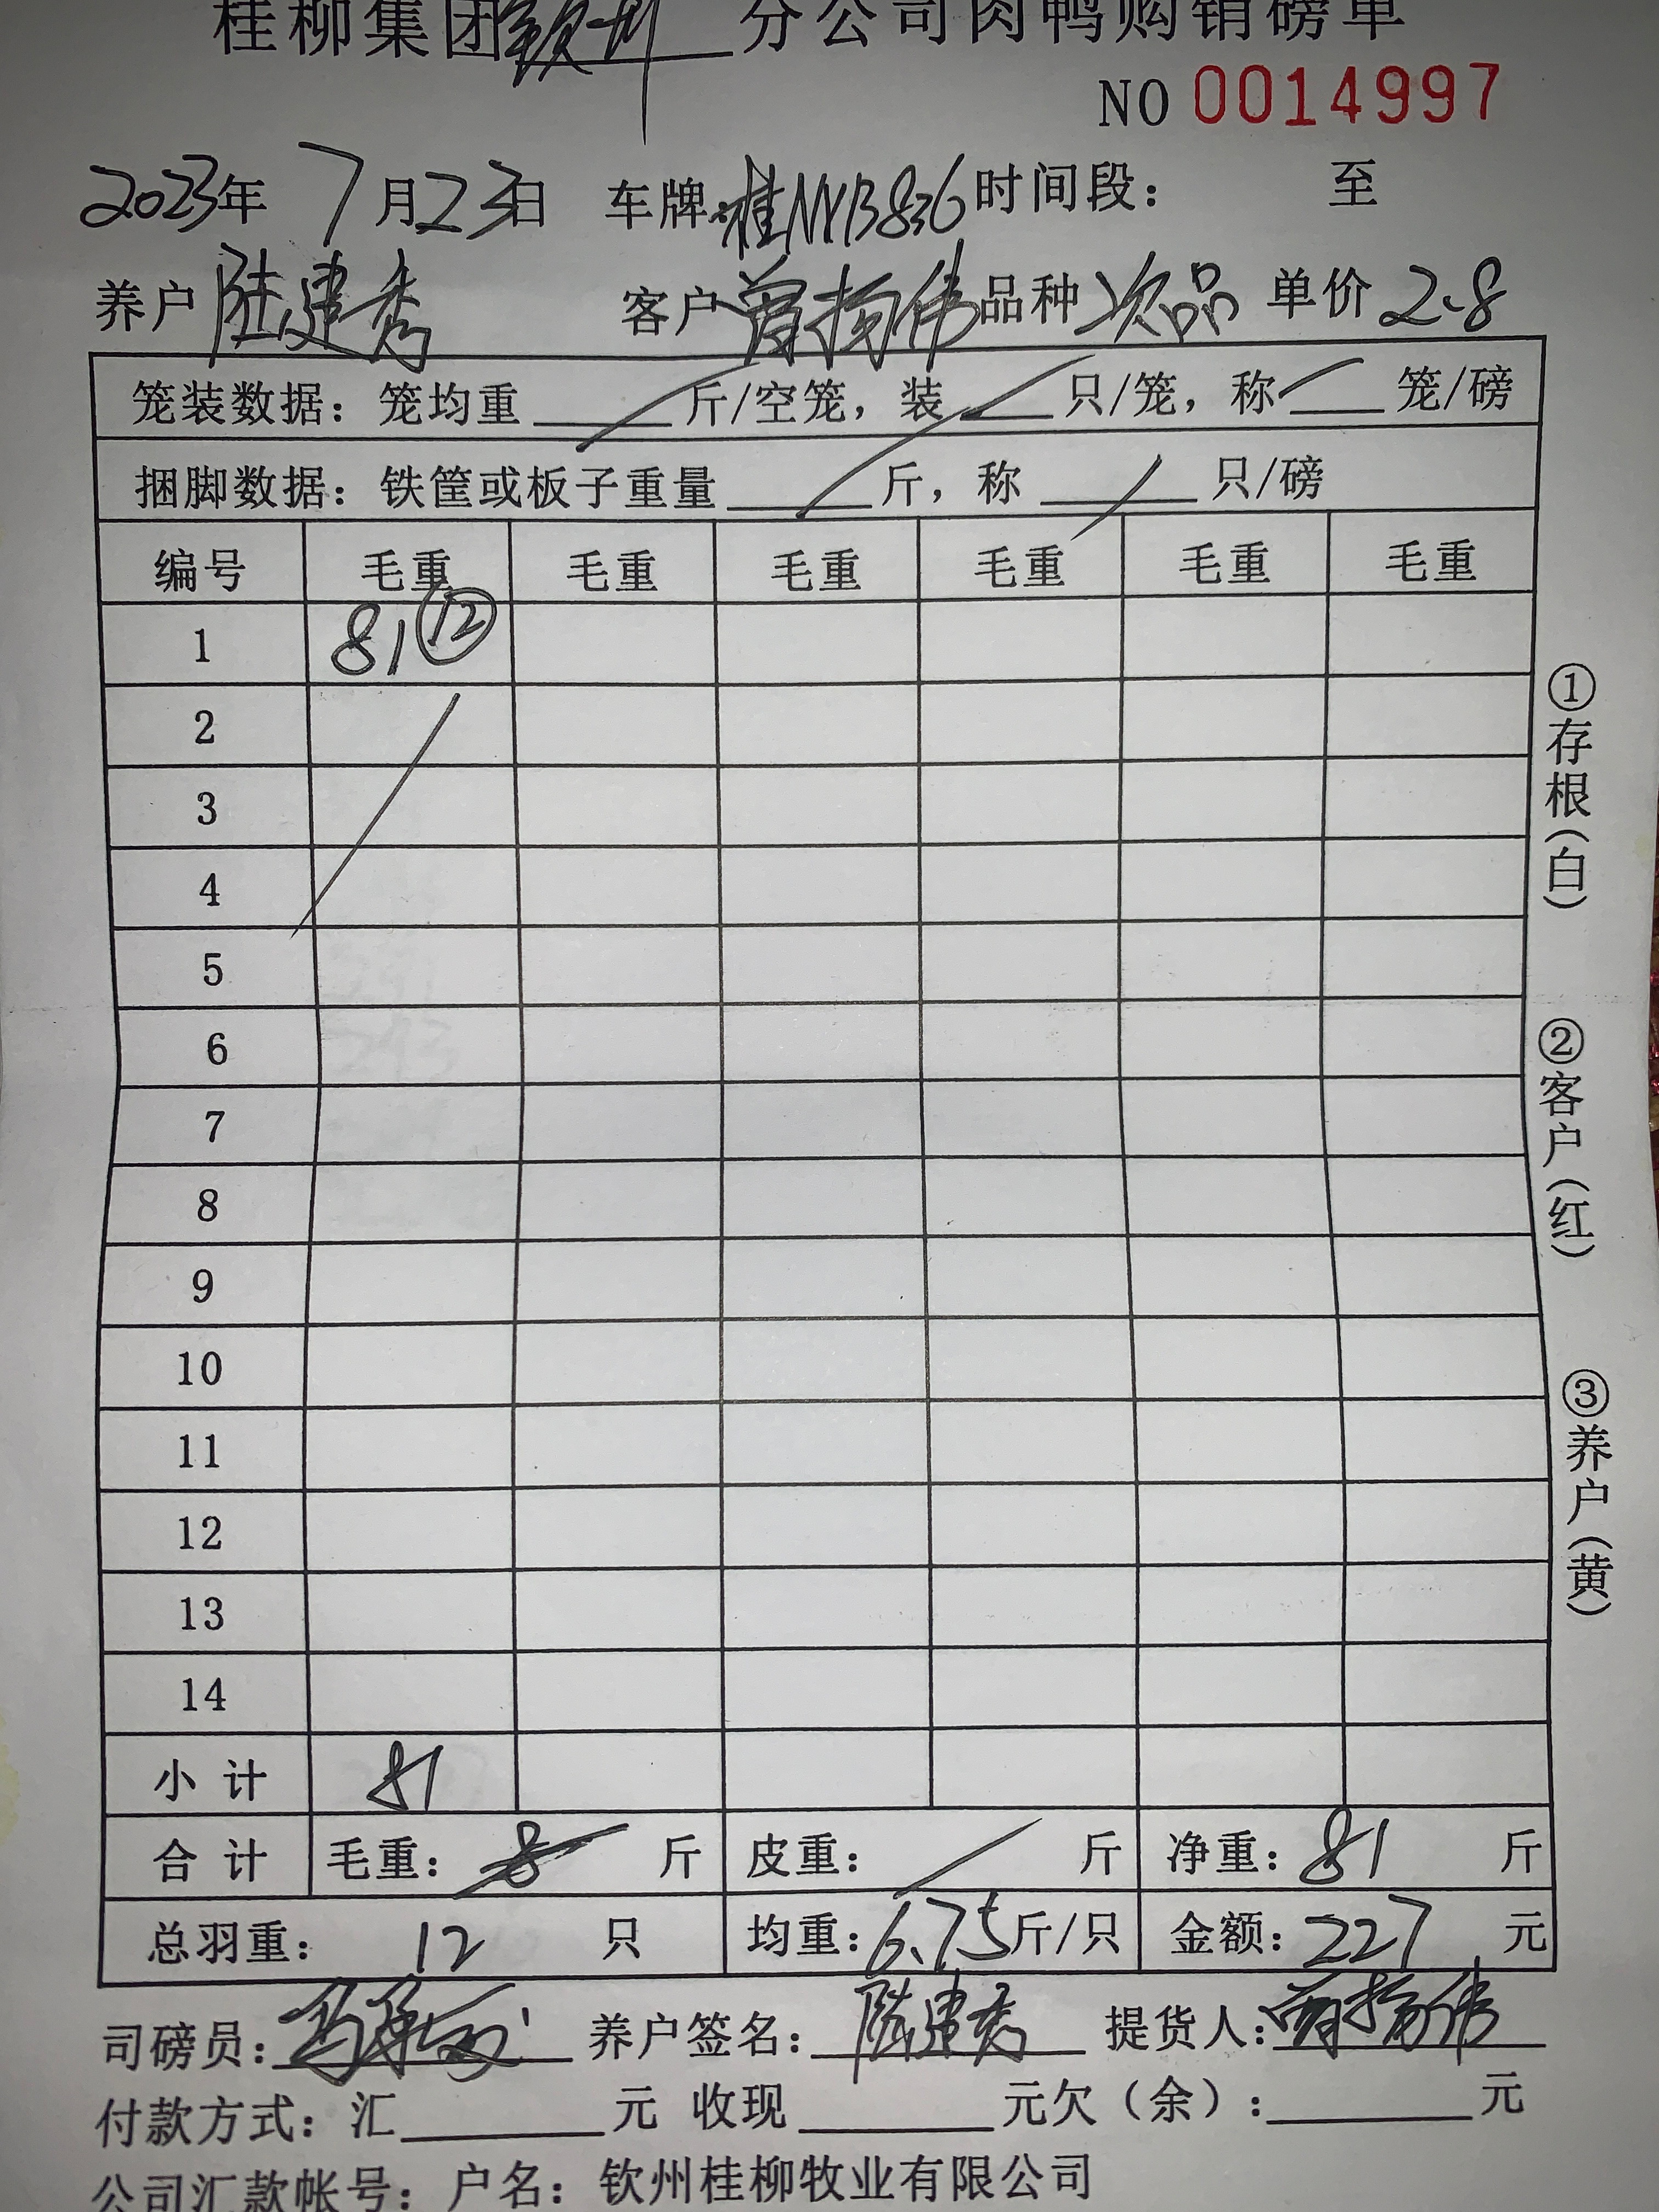 桂柳集团钦州分公司肉鸭购销磅单
NO 0014997
2023年 7月23日 车牌:桂NYB836 时间段: 至
养户 陆建秀 客户 曾扬伟 品种 次品 单价 2.8
笼装数据: 笼均重 斤/空笼, 装 只/笼, 称 笼/磅
捆脚数据: 铁筐或板子重量 斤, 称 只/磅
编号 毛重 毛重 毛重 毛重 毛重 毛重
1 81 ⑫
2
3
4
5
6
7
8
9
10
11
12
13
14
小计 81
合计 毛重: 斤 皮重: 斤 净重: 81 斤
总羽重: 12 只 均重: 6.75 斤/只 金额: 227 元
司磅员: 养户签名: 陆建秀 提货人: 曾扬伟
付款方式: 汇 元 收现 元欠(余): 元
公司汇款帐号: 户名: 钦州桂柳牧业有限公司
①存根(白)
②客户(红)
③养户(黄)